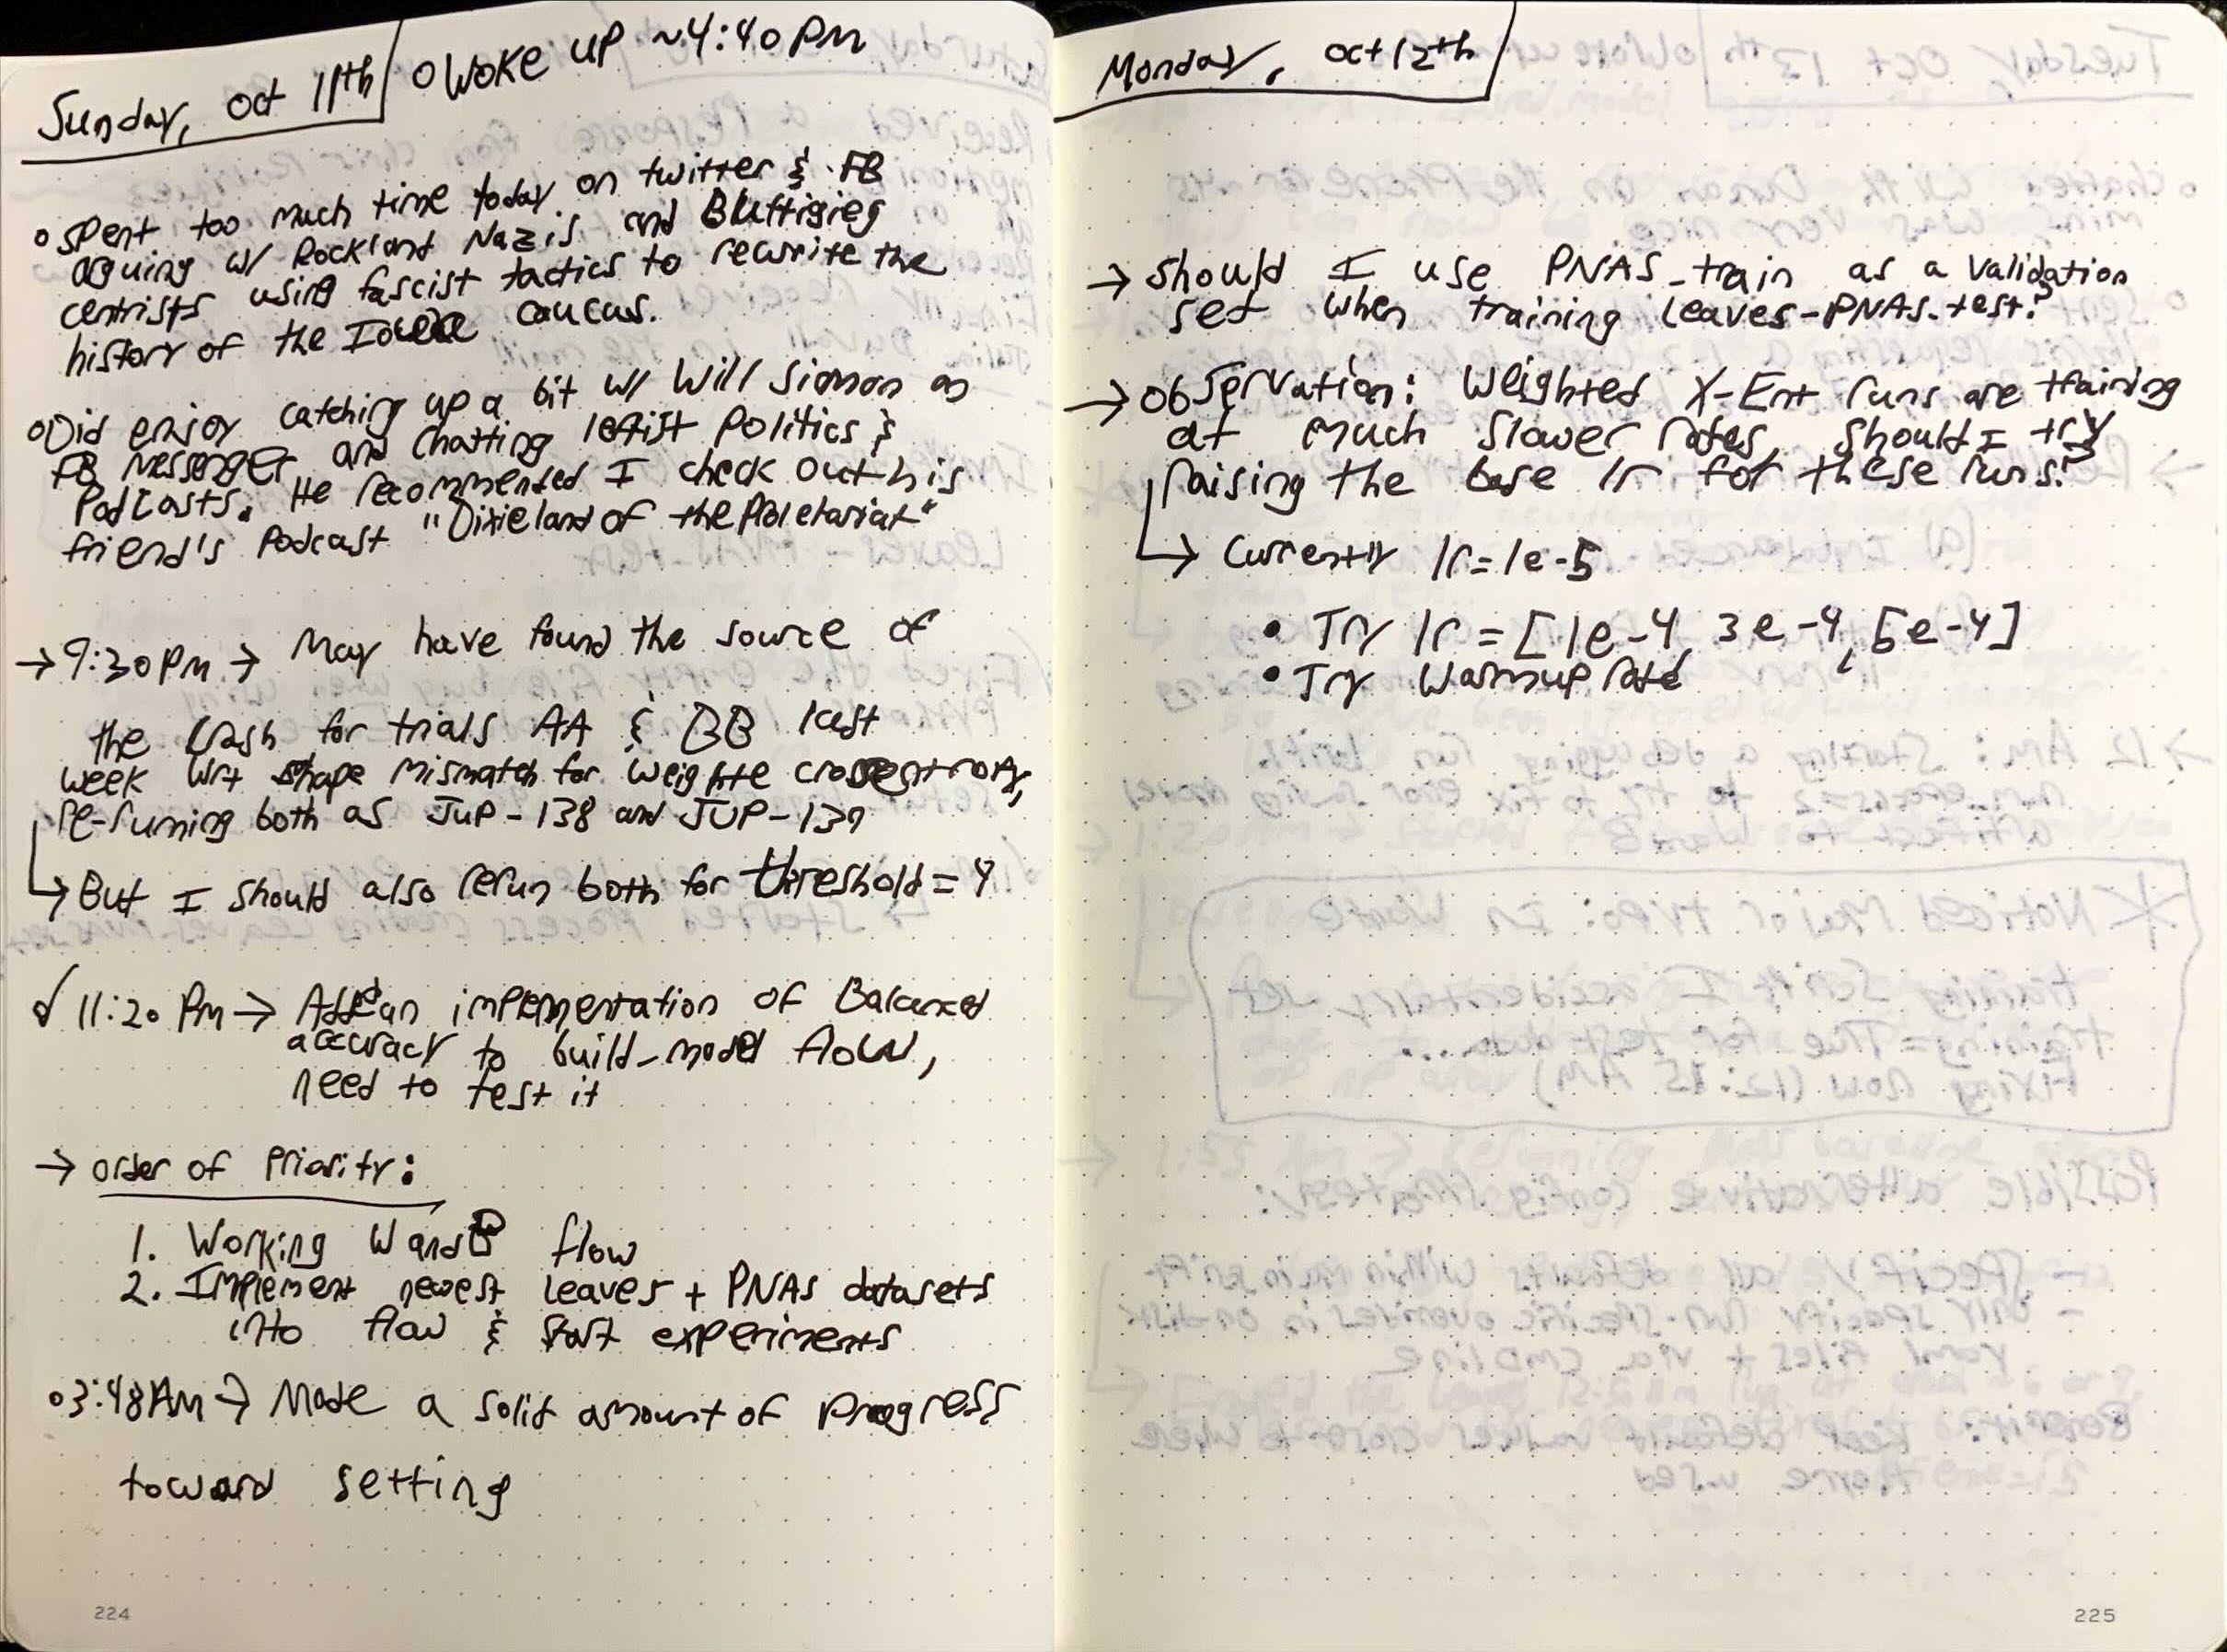 Sunday, Oct 11th
o Woke up ~4:40 PM
o Spent too much time today on twitter & FB
arguing w/ Rockland Nazis and Buttigieg
centrists using fascist tactics to rewrite the
history of the Iowa caucus.
o Did enjoy catching up a bit w/ Will Simon on
FB Messenger and chatting leftist politics &
Podcasts. He recommended I check out his
friend's Podcast "Dixieland of the Proletariat"
→ 9:30 PM → May have found the source of
the crash for trials AA & BB last
week wrt shape mismatch for weighte crossentropy,
re-running both as JUP-138 and JUP-139
↳ But I should also rerun both for threshold = 4
√ 11:20 PM → Added an implementation of Balanced
accuracy to build-model flow,
need to test it
→ Order of Priority:
1. Working WandB flow
2. Implement newest Leaves + PNAS datasets
into flow & start experiments
o 3:48 AM → Made a solid amount of progress
toward setting
224
Monday, Oct 12th
→ Should I use PNAS_train as a validation
set when training Leaves-PNAS_test?
→ Observation: Weighted X-Ent runs are training
at much slower rates, should I try
raising the base lr for these runs?
↳ Currently lr=1e-5
• Try lr = [1e-4, 3e-4, 5e-4]
• Try Warmup rate
225